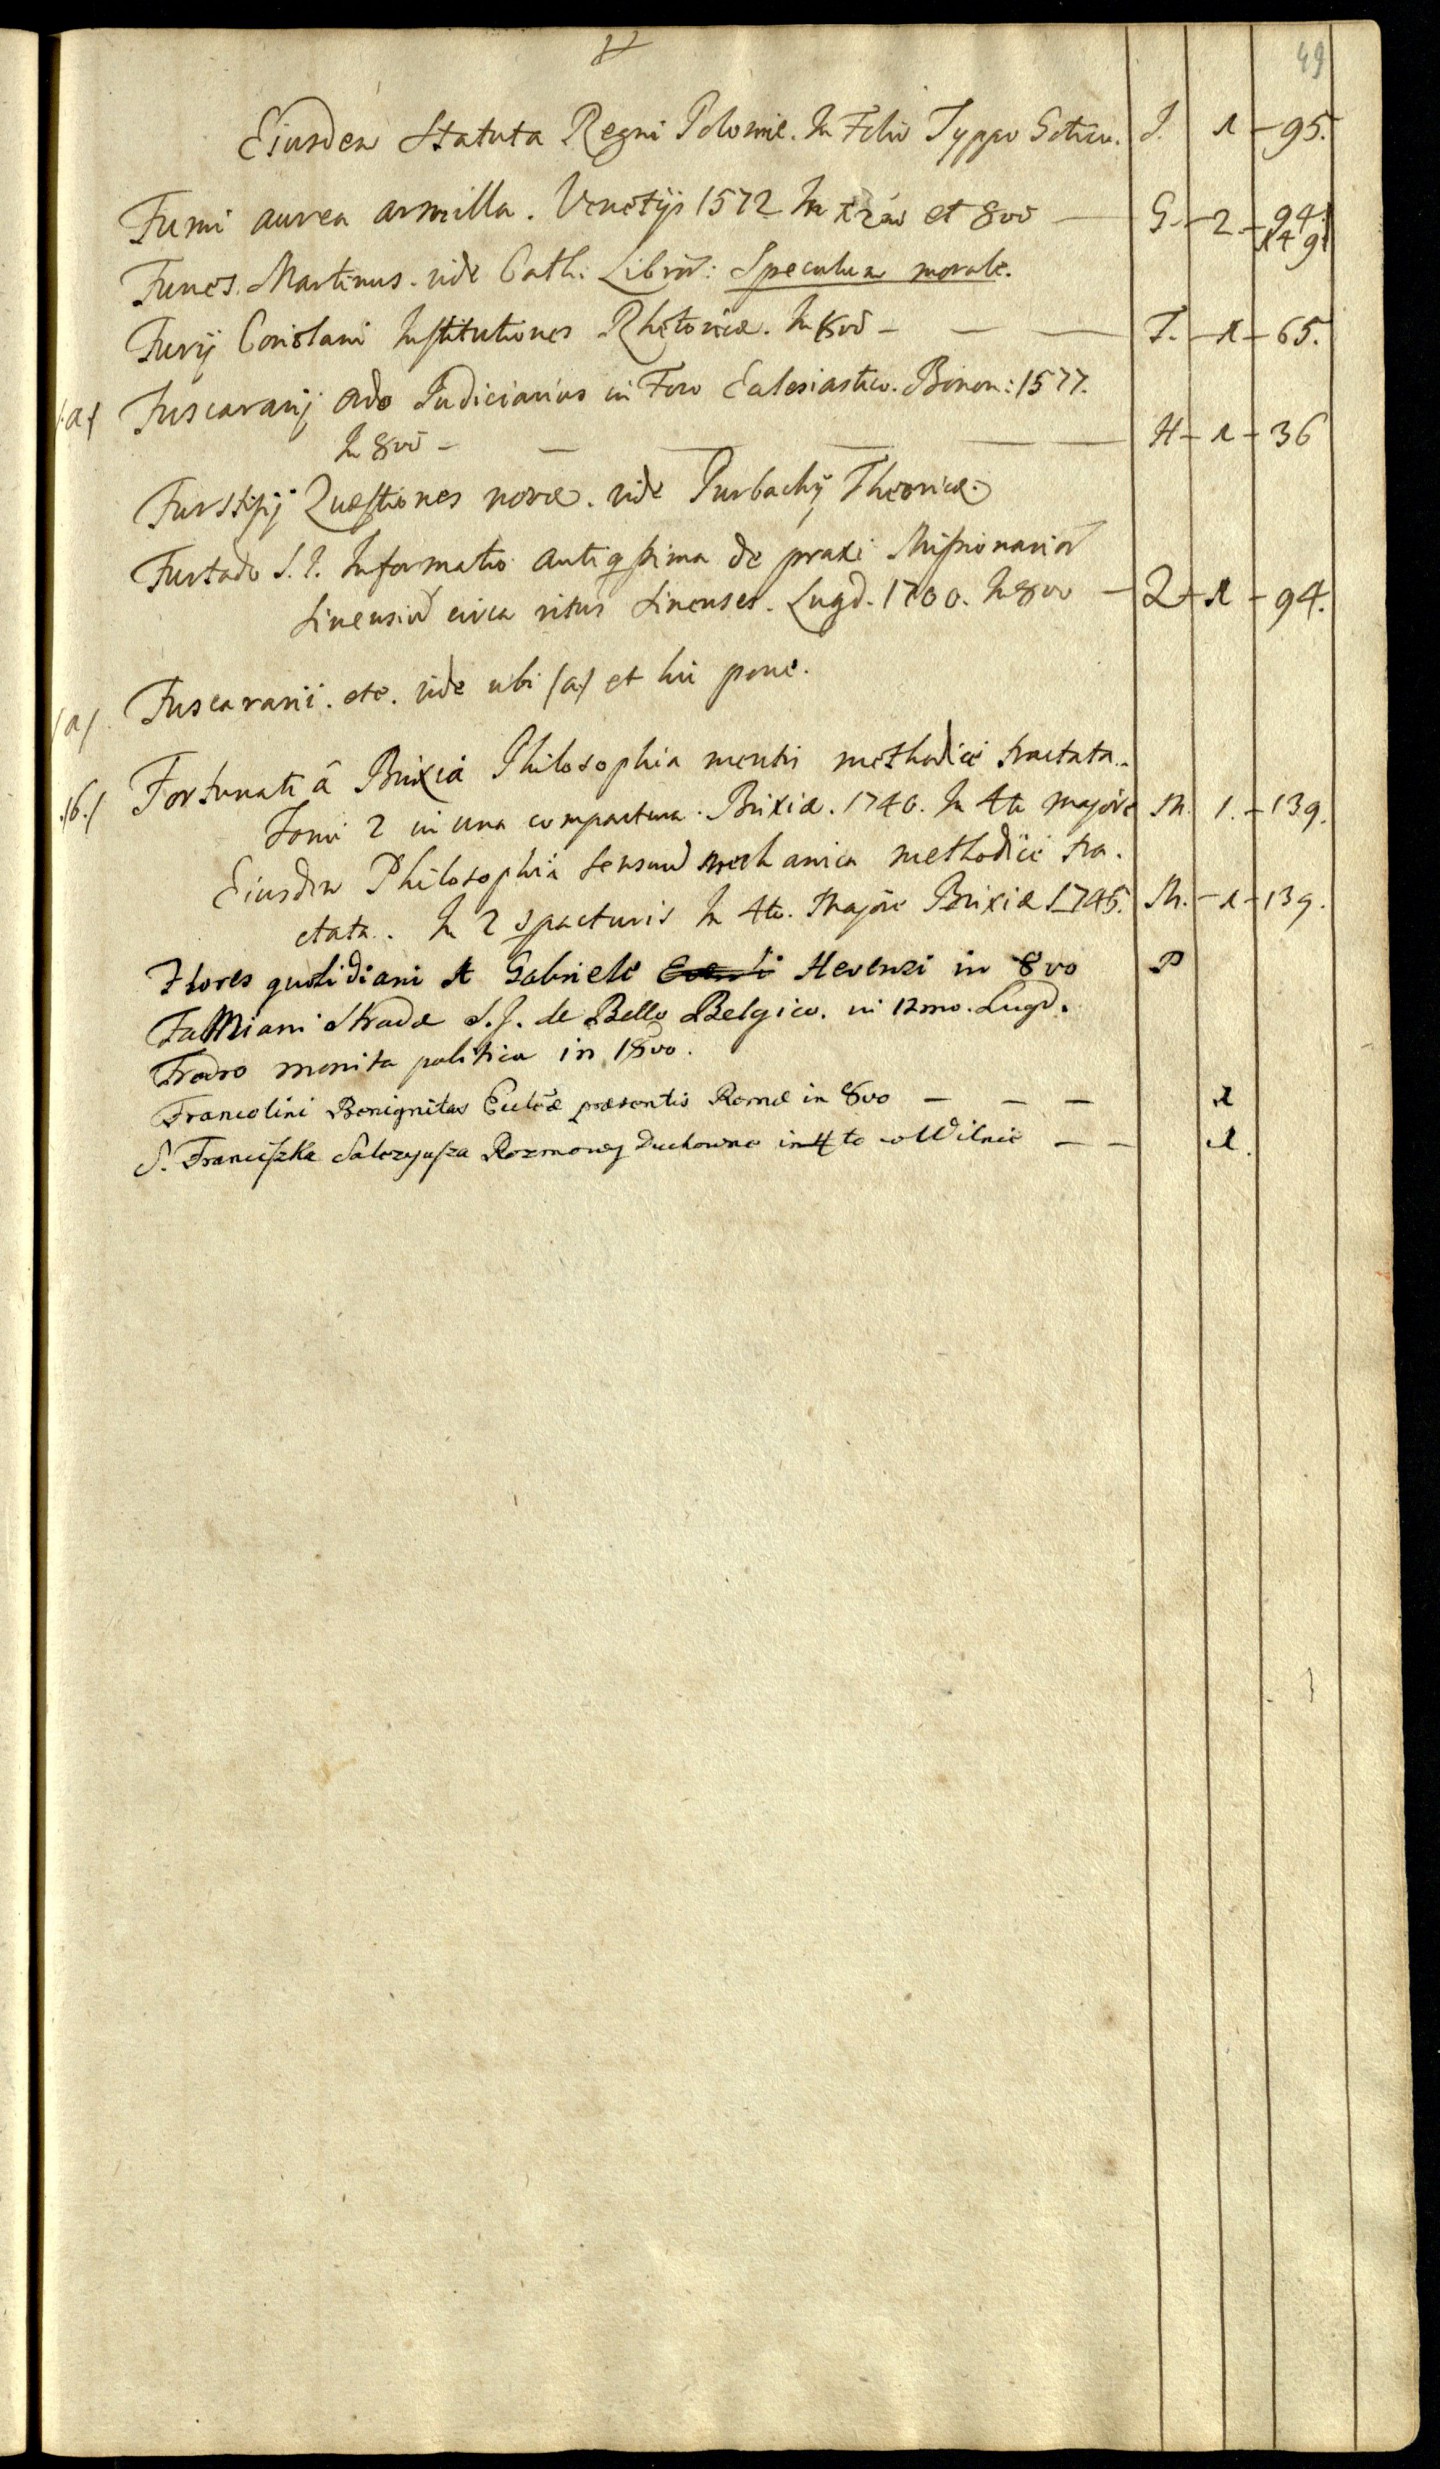 49
Eiusdem Statuta Regni Polonie. In Folio Typpo Gothico. J. 1 - 95.
Fumi aurea armilla. Venetijs 1572 In 12mo et 8vo — G. - 2 - 94.
149
Funes. Martinus. vide Cath. Libror: Speculum morale.
Furij Coriolani Institutiones Rhetoricæ. In 8vo - — — T. - 1 - 65.
/:a:/ Fuscararij ordo Judiciarius in Foro Eclesiastico. Bonon: 1577.
In 8vo - — — — — — H - 1 - 36
Quæstiones novæ. vide Purbachij Theoricæ.
Furtado S. J. Informatio antiqssima de praxi Missionarior
Sinensiu circa ritus Sinenses. Lugd. 1700. In 8vo - Z - 1 - 94.
/a/. Fuscararii. etc. vide ubi /a/ et hic pone.
./6./ Fortunati â Brixia Philosophia mentis methodice tractata..
Tomi 2 in una compactura. Brixiæ. 1740. In 4to majore M. 1. - 139.
Eiusdem Philosophia sensuu mechanica methodice tra.
ctata.. In 2 cpacturis In 4to. Majore Brixiæ 1745. M. - 1 - 139.
Flores quotidiani A Gabriele Hevenesi in 8vo P
FaMiani Stradæ S. J. de Bello Belgico. in 12mo. Lugd.
Fredro monita politica in 8vo.
Francolini Benignitas Eccłæ præsentis Romæ in 8vo — — — 1
S. Franciszka Salezyusza Rozmowy Duchowne in 4to w Wilnie — — 1.